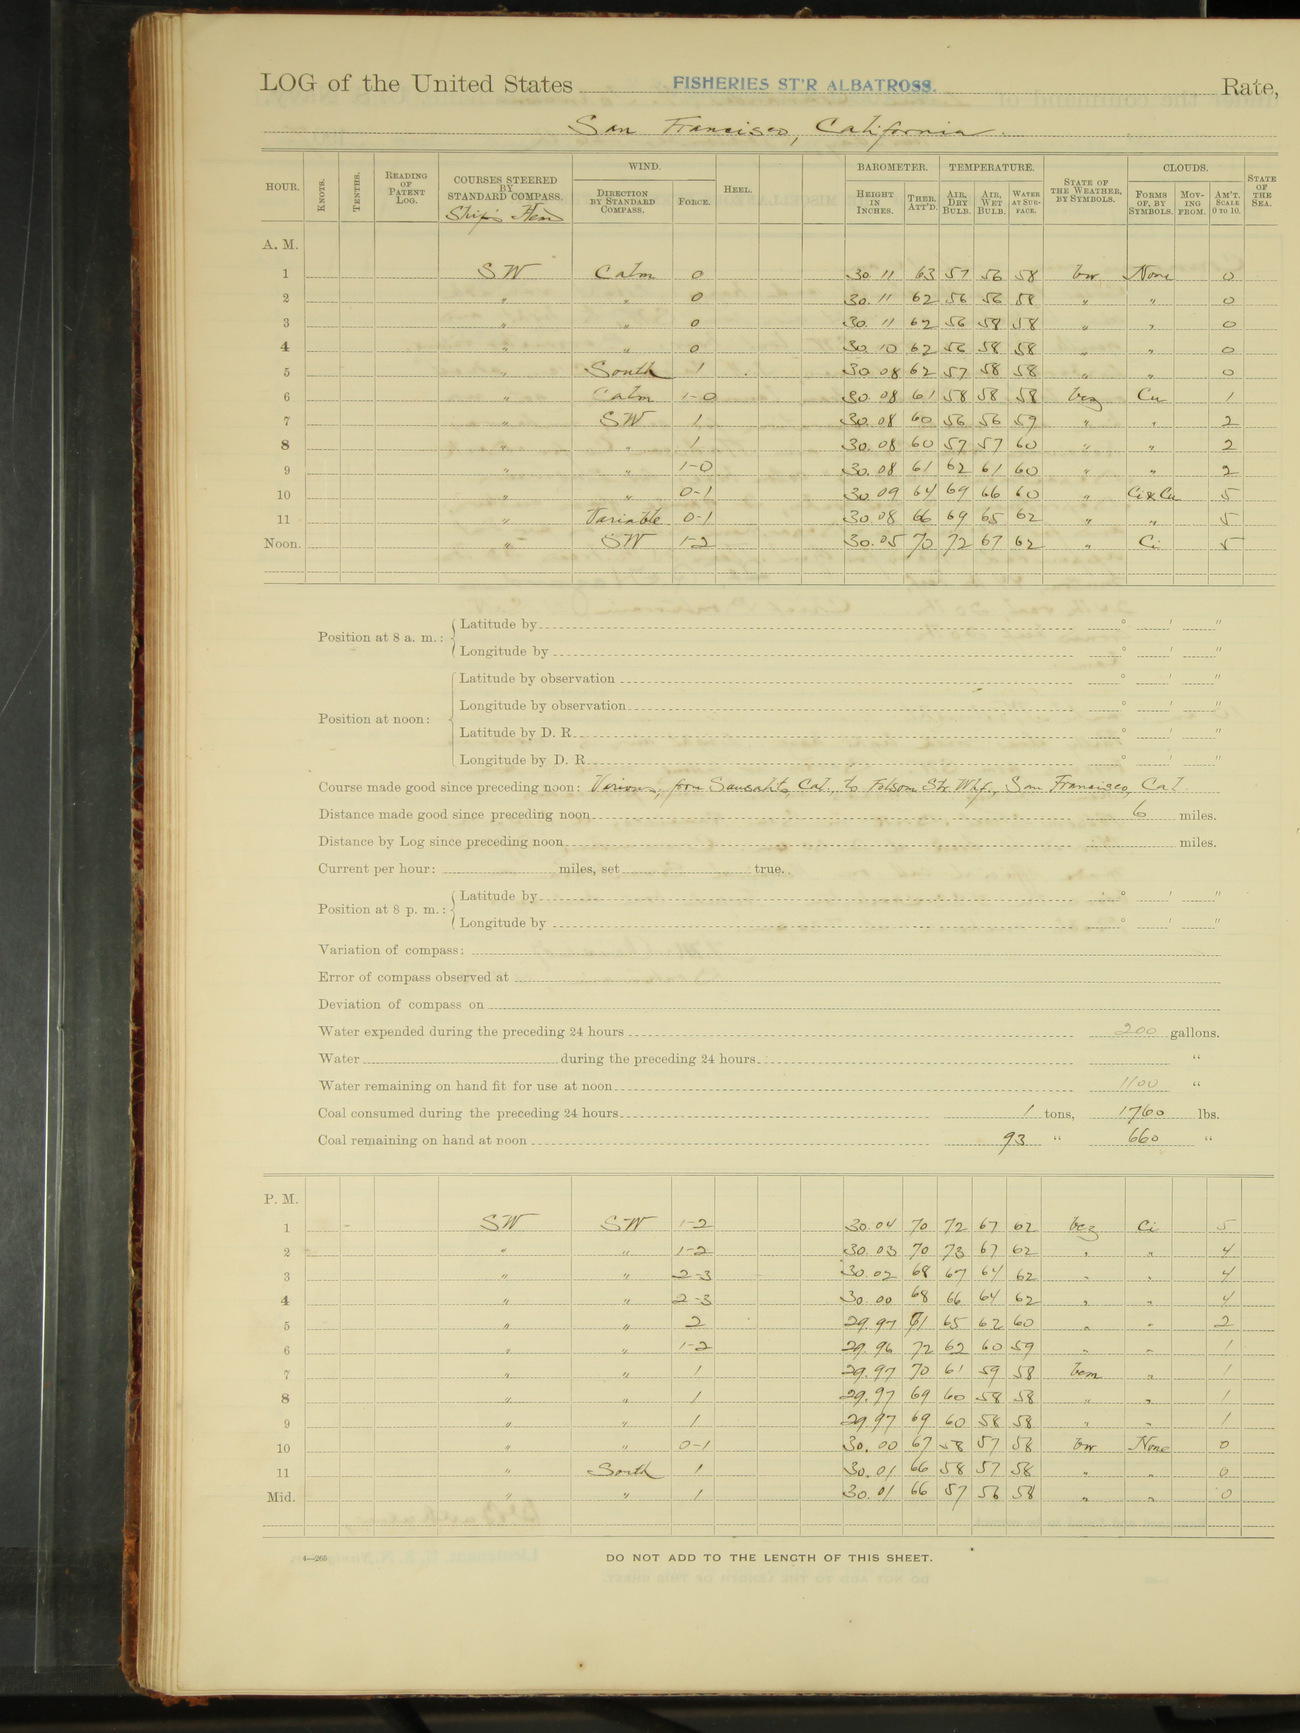 LOG of the United States FISHERIES ST'R ALBATROSS. Rate,
San Francisco, California.
HOUR. KNOTS. TENTHS. READING OF PATENT LOG. COURSES STEERED BY STANDARD COMPASS. WIND. DIRECTION BY STANDARD COMPASS. FORCE. HEEL. BAROMETER. HEIGHT IN INCHES. THER. ATT'D. TEMPERATURE. AIR, DRY BULB. AIR, WET BULB. WATER AT SURFACE. STATE OF THE WEATHER, BY SYMBOLS. CLOUDS. FORMS OF, BY SYMBOLS. MOVING FROM. AM'T. SCALE 0 TO 10. STATE OF THE SEA.
Ship's
A. M.
1 SW Calm 0 30.11 63 57 56 58 bw None 0
2 " " 0 30.11 62 56 56 58 " " 0
3 " " 0 30.11 62 56 58 58 " " 0
4 " " 0 30.10 62 56 58 58 " " 0
5 " South 1 30.08 62 57 58 58 " " 0
6 " Calm 1-0 30.08 61 58 58 58 bcz Cu 1
7 " SW 1 30.08 60 56 56 59 " " 2
8 " " 1 30.08 60 57 57 60 " " 2
9 " " 1-0 30.08 61 62 61 60 " " 2
10 " " 0-1 30.09 64 69 66 60 " Ci & Cu 5
11 " Variable 0-1 30.08 66 69 65 62 " " 5
Noon. " SW 1-2 30.05 70 72 67 62 " Ci 5
Position at 8 a. m.: Latitude by ° ' "
Longitude by ° ' "
Position at noon: Latitude by observation ° ' "
Longitude by observation ° ' "
Latitude by D. R. ° ' "
Longitude by D. R. ° ' "
Course made good since preceding noon: Various, from Sausalito, Cal., to Folsom Str. Whf., San Francisco, Cal.
Distance made good since preceding noon 6 miles.
Distance by Log since preceding noon miles.
Current per hour: miles, set true.
Position at 8 p. m.: Latitude by ° ' "
Longitude by ° ' "
Variation of compass:
Error of compass observed at
Deviation of compass on
Water expended during the preceding 24 hours 200 gallons.
Water during the preceding 24 hours "
Water remaining on hand fit for use at noon 1100 "
Coal consumed during the preceding 24 hours 1 tons, 1760 lbs.
Coal remaining on hand at noon 93 " 660 "
P. M.
1 SW SW 1-2 30.04 70 72 67 62 bcz Ci 5
2 " " 1-2 30.03 70 73 67 62 " " 4
3 " " 2-3 30.02 68 67 64 62 " " 4
4 " " 2-3 30.00 68 66 64 62 " " 4
5 " " 2 29.97 71 65 62 60 " " 2
6 " " 1-2 29.96 72 62 60 59 " " 1
7 " " 1 29.97 70 61 59 58 bcm " 1
8 " " 1 29.97 69 60 58 58 " " 1
9 " " 1 29.97 69 60 58 58 " " 1
10 " " 0-1 30.00 67 58 57 58 bw None 0
11 " South 1 30.01 66 58 57 58 " " 0
Mid. " " 1 30.01 66 57 56 58 " " 0
4—265 DO NOT ADD TO THE LENGTH OF THIS SHEET.